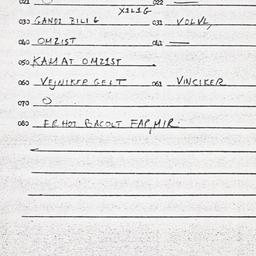 021 O 022 —
X1L1G
030 GANDI ZILI G 031 VOLVL,
040 OMZIST 041 —
050 KAMAT OMZIST
060 VEJNIKER GELT 061 VINCIKER
070 O
080 ERHOT BACOLT FAR, MIR.